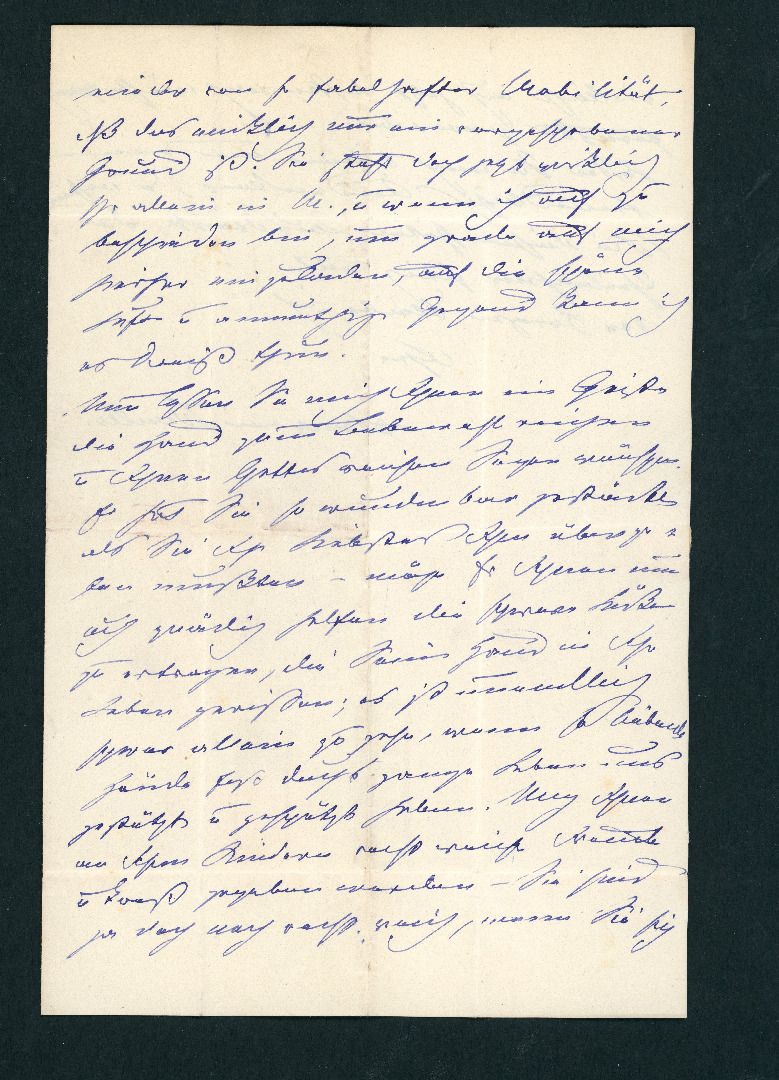 wieder von so fabelhafter Mobilität,
daß das wirklich nur ein vorgeschobener
Grund ist. Sie sind doch jetzt wirklich
so allein in M., u wenn ich auch zu
bescheiden bin, um grade auf mich
hierher einzuladen, auf die schöne
Luft u anmuthige Gegend kann ich
es dreist thun.
Nun lassen Sie mich Ihnen im Geiste
die Hand zum Lebewohl reichen
u Ihnen Gottes reichen Segen wünschen.
Er hat Sie so wunderbar gestärkt
als Sie Ihr Liebstes Ihm überge-
ben mußten – möge Er Ihnen nun
auch gnädig helfen die schwere Lücke
zu ertragen, die Seine Hand in Ihr
Leben gerissen; es ist unendlich
schwer allein zu gehn, wenn so liebende
Hände fest durchs ganze Leben uns
gestützt u geschützt haben. Mag Ihnen
an Ihren Kindern recht reiche Freude
u Trost gegeben werden – Sie sind
ja doch noch recht reich, wenn Sie sich